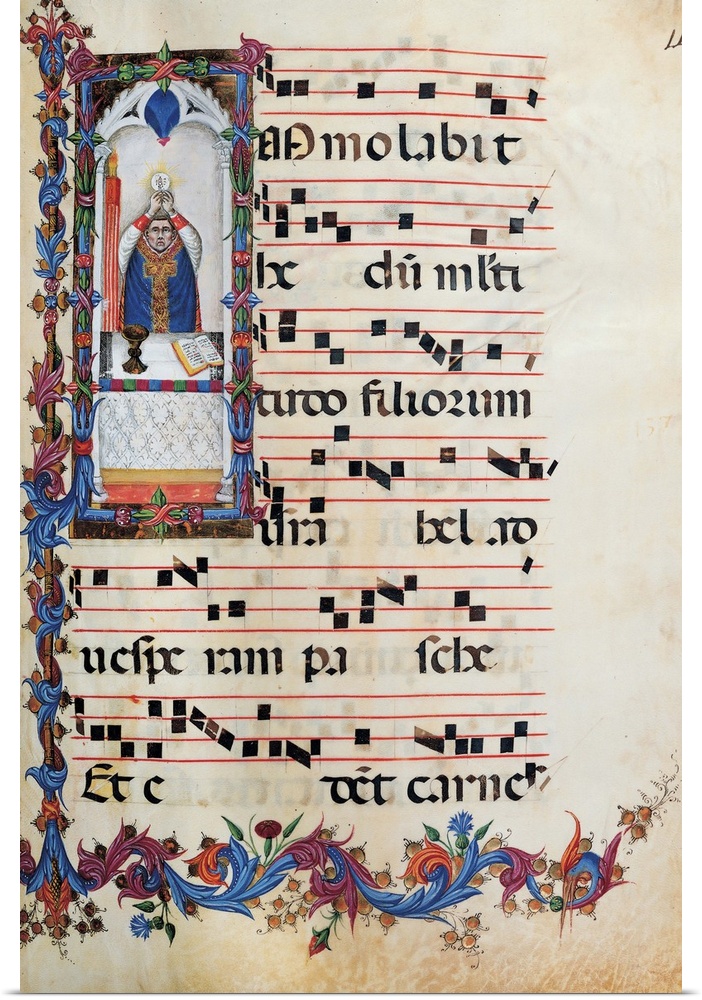 mmolabit
he dū ml'ti
tudo filiorum
isra hel ad
uespe ram pa sche
Et e dēt carnes